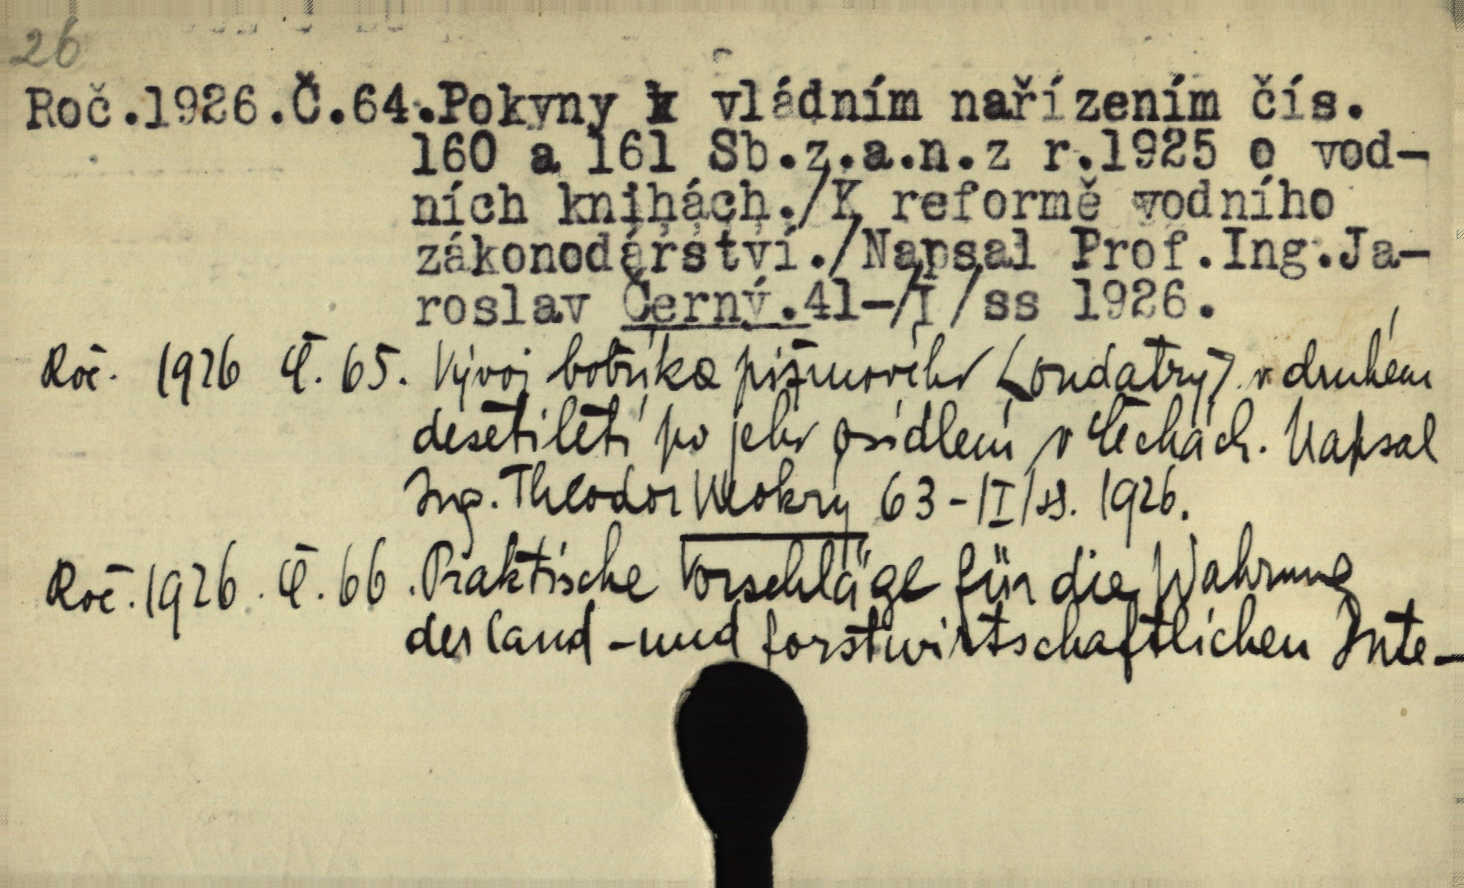 26
Roč.1926.Č.64.Pokyny k vládním nařízením čís.
160 a 161 Sb.z.a.n.z r.1925 o vod-
ních knihách./K reformě vodního
zákonodářství./Napsal Prof.Ing.Ja-
roslav Černý.41-/I/ss 1926.
Roč. 1926 Č. 65. Vývoj bobříka pižmového (ondatry) v druhém
desetiletí po jeho osídlení v Čechách. Napsal
Ing. Theodor Mokrý 63-/I/ss. 1926.
Roč. 1926. Č. 66. Praktische Vorschläge für die Wahrung
der land-und forstwirtschaftlichen Inte-